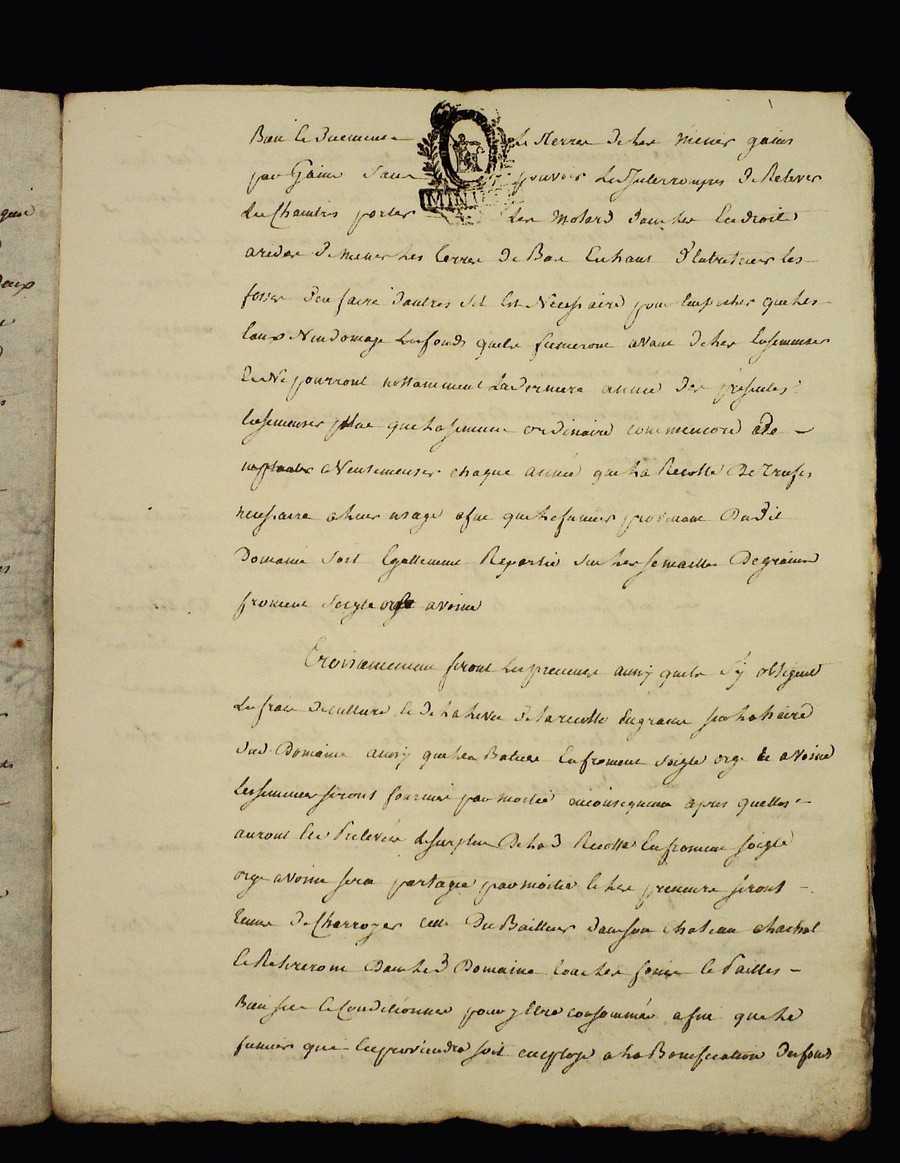 Bien le duement le Terres de les mener gains
par Gains sans pouvoir les Interrompres de Relever
les Chaintres porter les motard dans les Endroits
arides de mener les terres de Bas En haut d'Entretenir les
fosses d'en faire d'autres sil Est Necessaire pour Empecher que les
Eaux N'endomage les fonds quils fumeront avant de les Ensemencer
Et Ne pourront nottamment La derniere année des presentes
Ensemencer que la semence ordinaire commencere
a N'ensemencer chaque année que la Recolte De Trufes
necessaire a leur usage afin que le fumier provenant Dudit
Domaine soit Egallement Repartie sur les semailles De grains
froment seigle orge avoine
Troisiemement seront les preneurs ainsy quils s'y obligent
les frais de culture et de la levée de la recolte En grains sur la ditte
dud Domaine ainsy que la Bature En froment seigle orge et avoine
Les semences seront fournies par moitié En consequence apres quelles
auront Eté Prelevées le surplus De la d Recolte En froment seigle
orge avoine sera partagée par moitié et les preneurs seront
tenus de Charroyer celle Du Bailleur dans son chateau
et Resserreront Dans le d Domaine tous les foins et Pailles
Bien sec et Conditionnés pour y Etre consommés afin que le
fumier qui En proviendra soit employé a la Bonification Des fonds
MIN